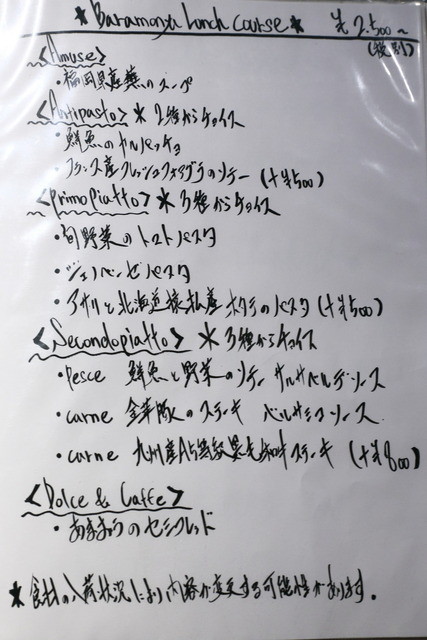 ★ Baramonya Lunch course ★ ¥2,500~
(税別)
<Amuse>
・福岡県産蕪のスープ
<Antipasto> ★ 2種からチョイス
・鮮魚のカルパッチョ
・フランス産フレッシュフォアグラのソテー (+¥500)
<Primopiatto> ★ 3種からチョイス
・旬野菜のトマトパスタ
・ジェノベーゼパスタ
・アサリと北海道猿払産ホタテのパスタ (+¥500)
<Secondopiatto> ★ 3種からチョイス
・Pesce 鮮魚と野菜のソテー サルサベルデソース
・carne 金華豚のステーキ バルサミコソース
・carne 九州産A5等級黒毛和牛ステーキ (+¥800)
<Dolce & Caffe>
・あまおうのセミフレッド
★ 食材の入荷状況により内容が変更する可能性があります。